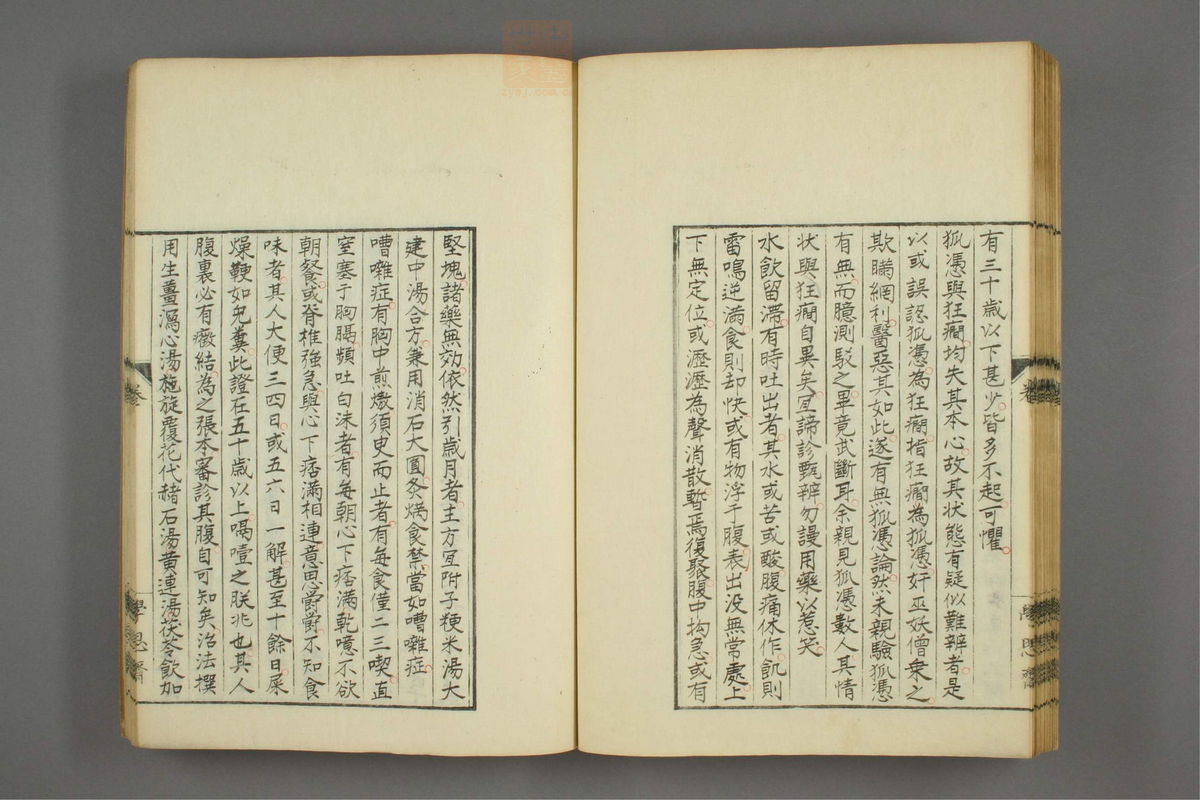 有三十歲以下甚少皆多不起可懼
狐憑與狂癇均失其本心故其狀態有疑似難辨者是
以或誤認狐憑為狂癇指狂癇為狐憑奸巫妖僧乗之
欺瞞網利醫惡其如此遂有無狐憑論然未親驗狐憑
有無而臆測駁之畢竟武斷耳余親見狐憑數人其情
狀與狂癇自異矣宜諦診甄辨勿謾用藥以惹笑
水飲留滯有時吐出者其水或苦或酸腹痛休作飢則
雷鳴逆滿食則却快或有物浮于腹表出没無常處上
下無定位或瀝瀝為聲消散暫焉復聚腹中拘急或有
堅塊諸藥無効依然引歲月者主方宜附子粳米湯大
建中湯合方兼用消石大圓灸焫食禁當如嘈雜症
嘈雜症有胸中煎熬須臾而止者有每食僅二三喫直
窒塞于胸膈頻吐白沫者有每朝心下痞滿乾噫不欲
朝餐或脊椎強急與心下痞滿相連意思鬱鬱不知食
味者其人大便三四日或五六日一解甚至十餘日屎
燥鞕如兔糞此證在五十歲以上噎之朕兆也其人
腹裏必有癥結為之張本審診其腹自可知矣治法撰
用生薑瀉心湯旋覆花代赭石湯黄連湯茯苓飲加
卷
學思齋
八